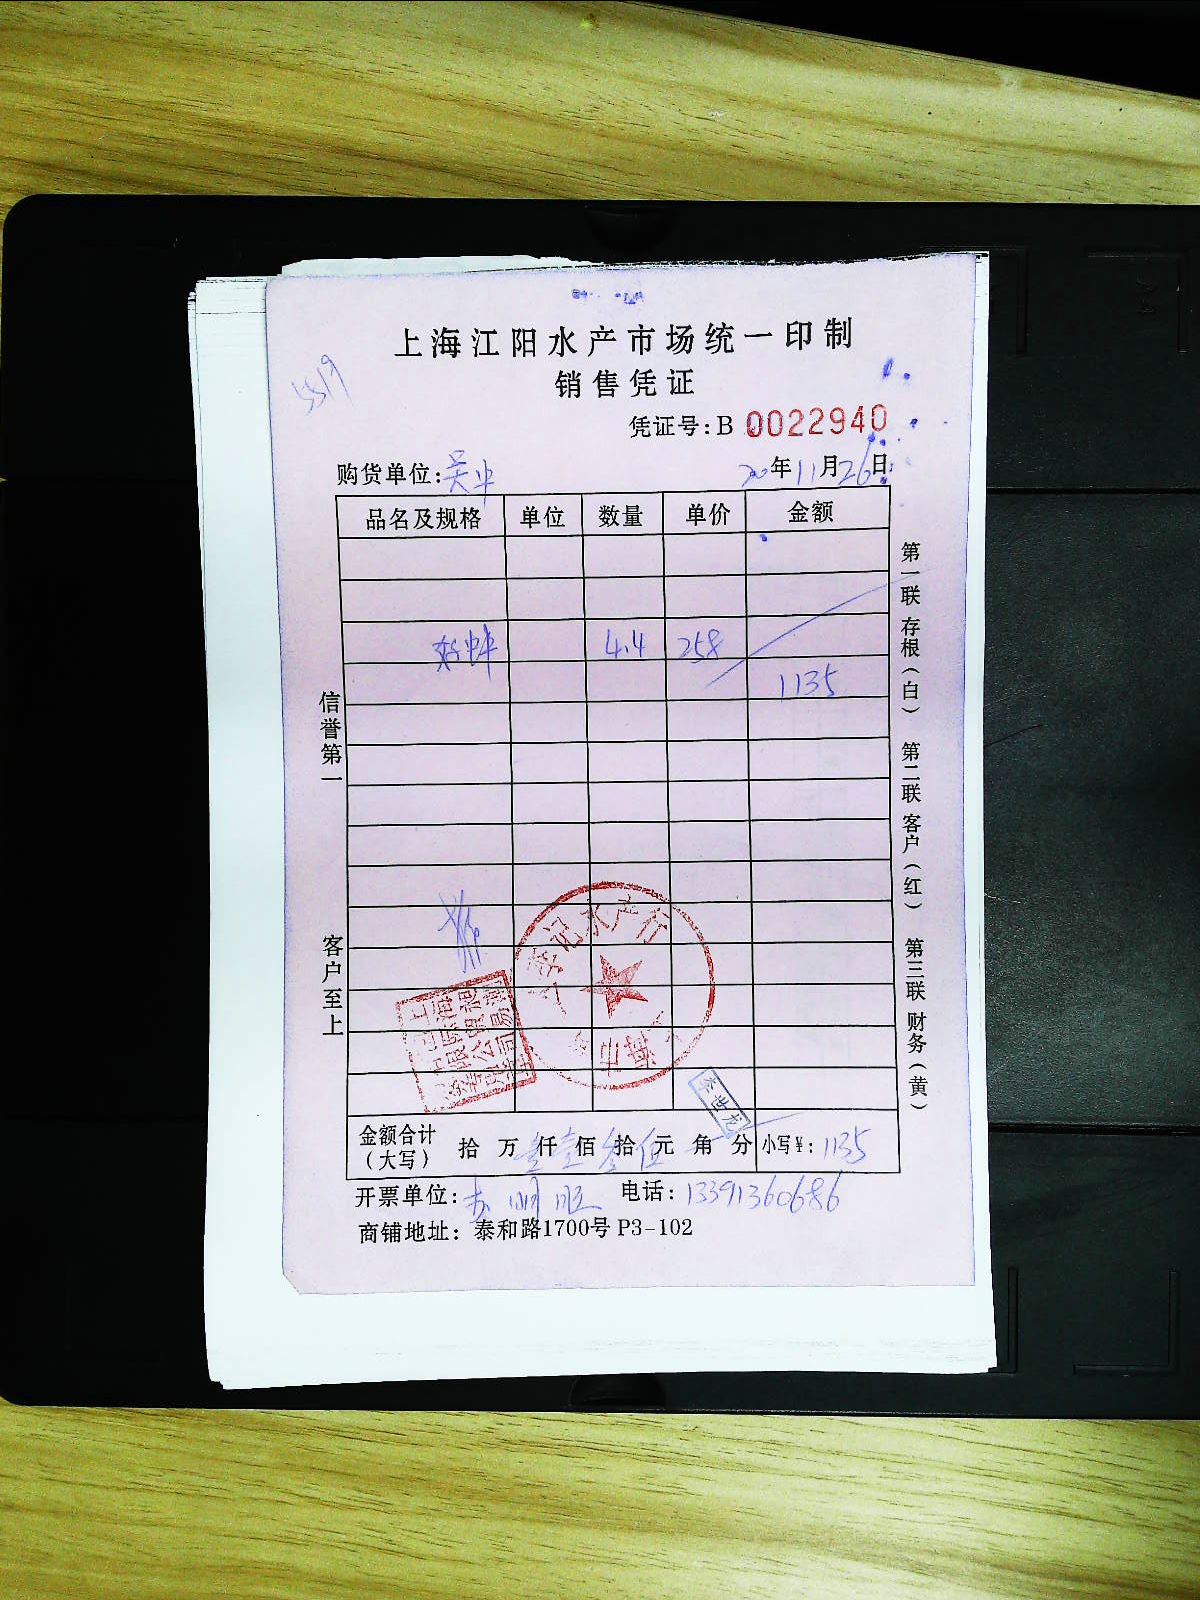 上海江阳水产市场统一印制
销售凭证
5519
凭证号:B 0022940
购货单位: 20年11月26日
品名及规格 单位 数量 单价 金额
4.4 258
1135
信誉第一
客户至上
第一联存根(白) 第二联客户(红) 第三联财务(黄)
李记水产行
李世龙
金额合计(大写) 拾万壹仟壹佰叁拾伍元角分 小写¥: 1135
开票单位: 电话: 13391360686
商铺地址: 泰和路1700号 P3-102